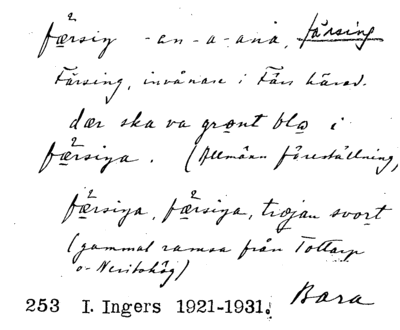 færsiŋ -an -a -ana, färsing
Färsing, invånare i Färs härad.
dær ska va grønt blo i
færsiŋa. (Allmän föreställning)
færsiŋa, færsiŋa, trøjan svort
(gammal ramsa från Tottarp
o. Nevitshög)
253 I. Ingers 1921-1931. Bara